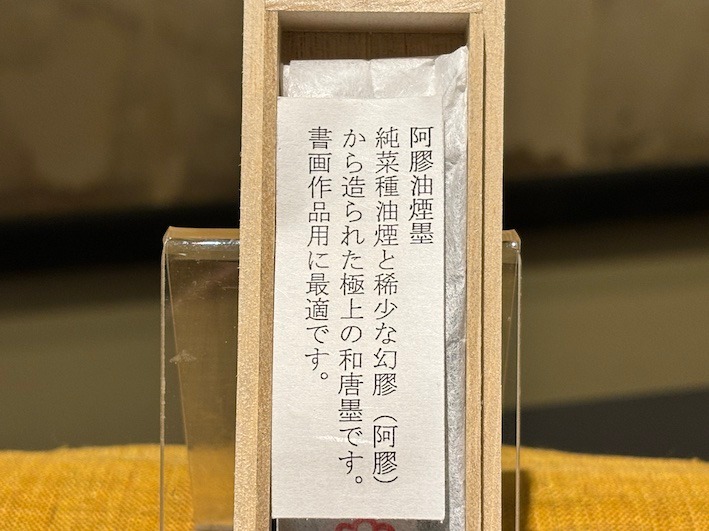 阿膠油煙墨
純菜種油煙と稀少な幻膠（阿膠）
から造られた極上の和唐墨です。
書画作品用に最適です。